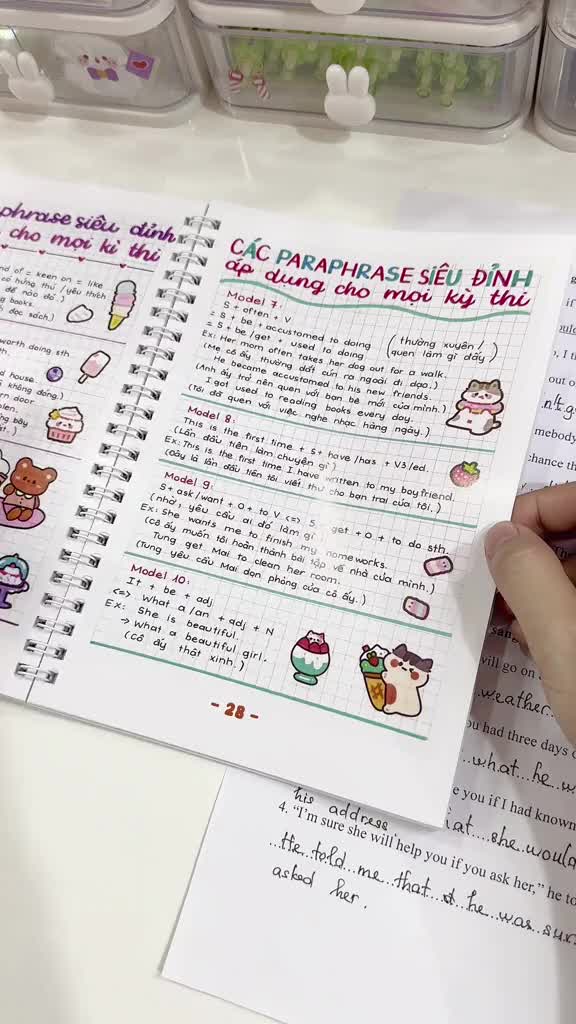 phrase siêu đỉnh
cho mọi kì thi
nd of = keen on = like
có hứng thú / yêu thích
để nào đó.)
g books.
h đọc sách.)
worth doing sth
th.
d house.
i không đáng.)
ern door.
len.
CÁC PARAPHRASE SIÊU ĐỈNH
áp dụng cho mọi kỳ thi
Model 7:
S + often + V
= S + be + accustomed to doing
= S + be/get + used to doing
(thường xuyên /
quen làm gì đấy)
Ex: Her mom often takes her dog out for a walk.
(Mẹ cô ấy thường dắt cún ra ngoài đi dạo.)
He became accustomed to his new friends.
(Anh ấy trở nên quen với bạn bè mới của mình.)
I got used to reading books every day.
(Tôi đã quen với việc nghe nhạc hàng ngày.)
Model 8:
This is the first time + S + have /has + V3/ed.
(Lần đầu tiên làm chuyện gì)
Ex: This is the first time I have written to my boyfriend.
(Đây là lần đầu tiên tôi viết thư cho bạn trai của tôi.)
Model 9:
S + ask / want + O + to V <=> S get + O + to do sth.
(nhờ, yêu cầu ai đó làm gì
Ex: She wants me to finish my homeworks.
(Cô ấy muốn tôi hoàn thành bài tập về nhà của mình.)
Tung get Mai to clean her room.
(Tung yêu cầu Mai dọn phòng của cô ấy.)
Model 10:
It + be + adj
<=> What a/an + adj + N
Ex: She is beautiful.
→ What a beautiful girl.
(Cô ấy thật xinh.)
- 28 -
if
, I t
out o
n't g
mebody
chance th
The
sang
will go on
weather
ou had three days o
what he w
e you if I had known
his address
at she would
4. “I’m sure she will help you if you ask her,” he to
He told me that he was sur
asked her.